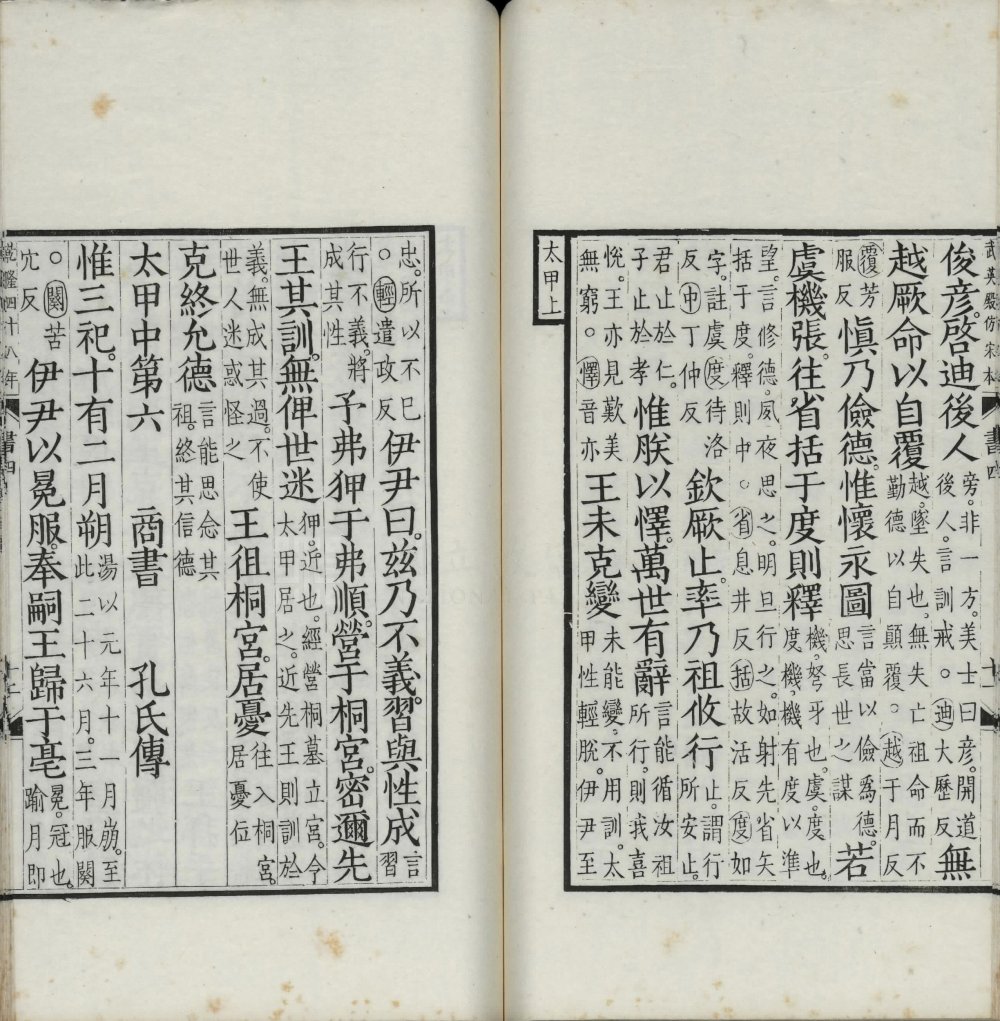 武英殿仿宋本 書四 十一
俊彥。啓迪後人旁。非一方。美士曰彥。開道後人。言訓戒。○迪大歷反無
越厥命以自覆越。墜失也。無失亡祖命而不勤德以自顛覆。○越于月反
覆芳服反慎乃儉德。惟懷永圖言當以儉爲德。思長世之謀若
虞機張。往省括于度則釋機。弩牙也。虞。度也。度機。機有度以準
望。言修德。夙夜思之。明旦行之。如射先省矢括于度。釋則中。○省息井反括故活反度如
字。註虞度待洛反中丁仲反欽厥止。率乃祖攸行止。謂行所安止。
君止於仁。子止於孝惟朕以懌。萬世有辭言能循汝祖所行。則我喜
悅。王亦見歎美無窮。○懌音亦王未克變未能變。不用訓。太甲性輕脫。伊尹至
太甲上
忠。所以不已。○輕遣政反伊尹曰。茲乃不義。習與性成言習
行不義。將成其性予弗狎于弗順。營于桐宮。密邇先
王其訓。無俾世迷狎。近也。經營桐墓立宮。令太甲居之。近先王則訓於
義。無成其過。不使世人迷惑怪之王徂桐宮。居憂往入桐宮。居憂位
克終允德言能思念其祖。終其信德
太甲中第六 商書 孔氏傳
惟三祀。十有二月朔湯以元年十一月崩。至此二十六月。三年服闋
○闋苦穴反伊尹以冕服。奉嗣王歸于亳冕。冠也。踰月即
乾隆四十八年 書四 十二